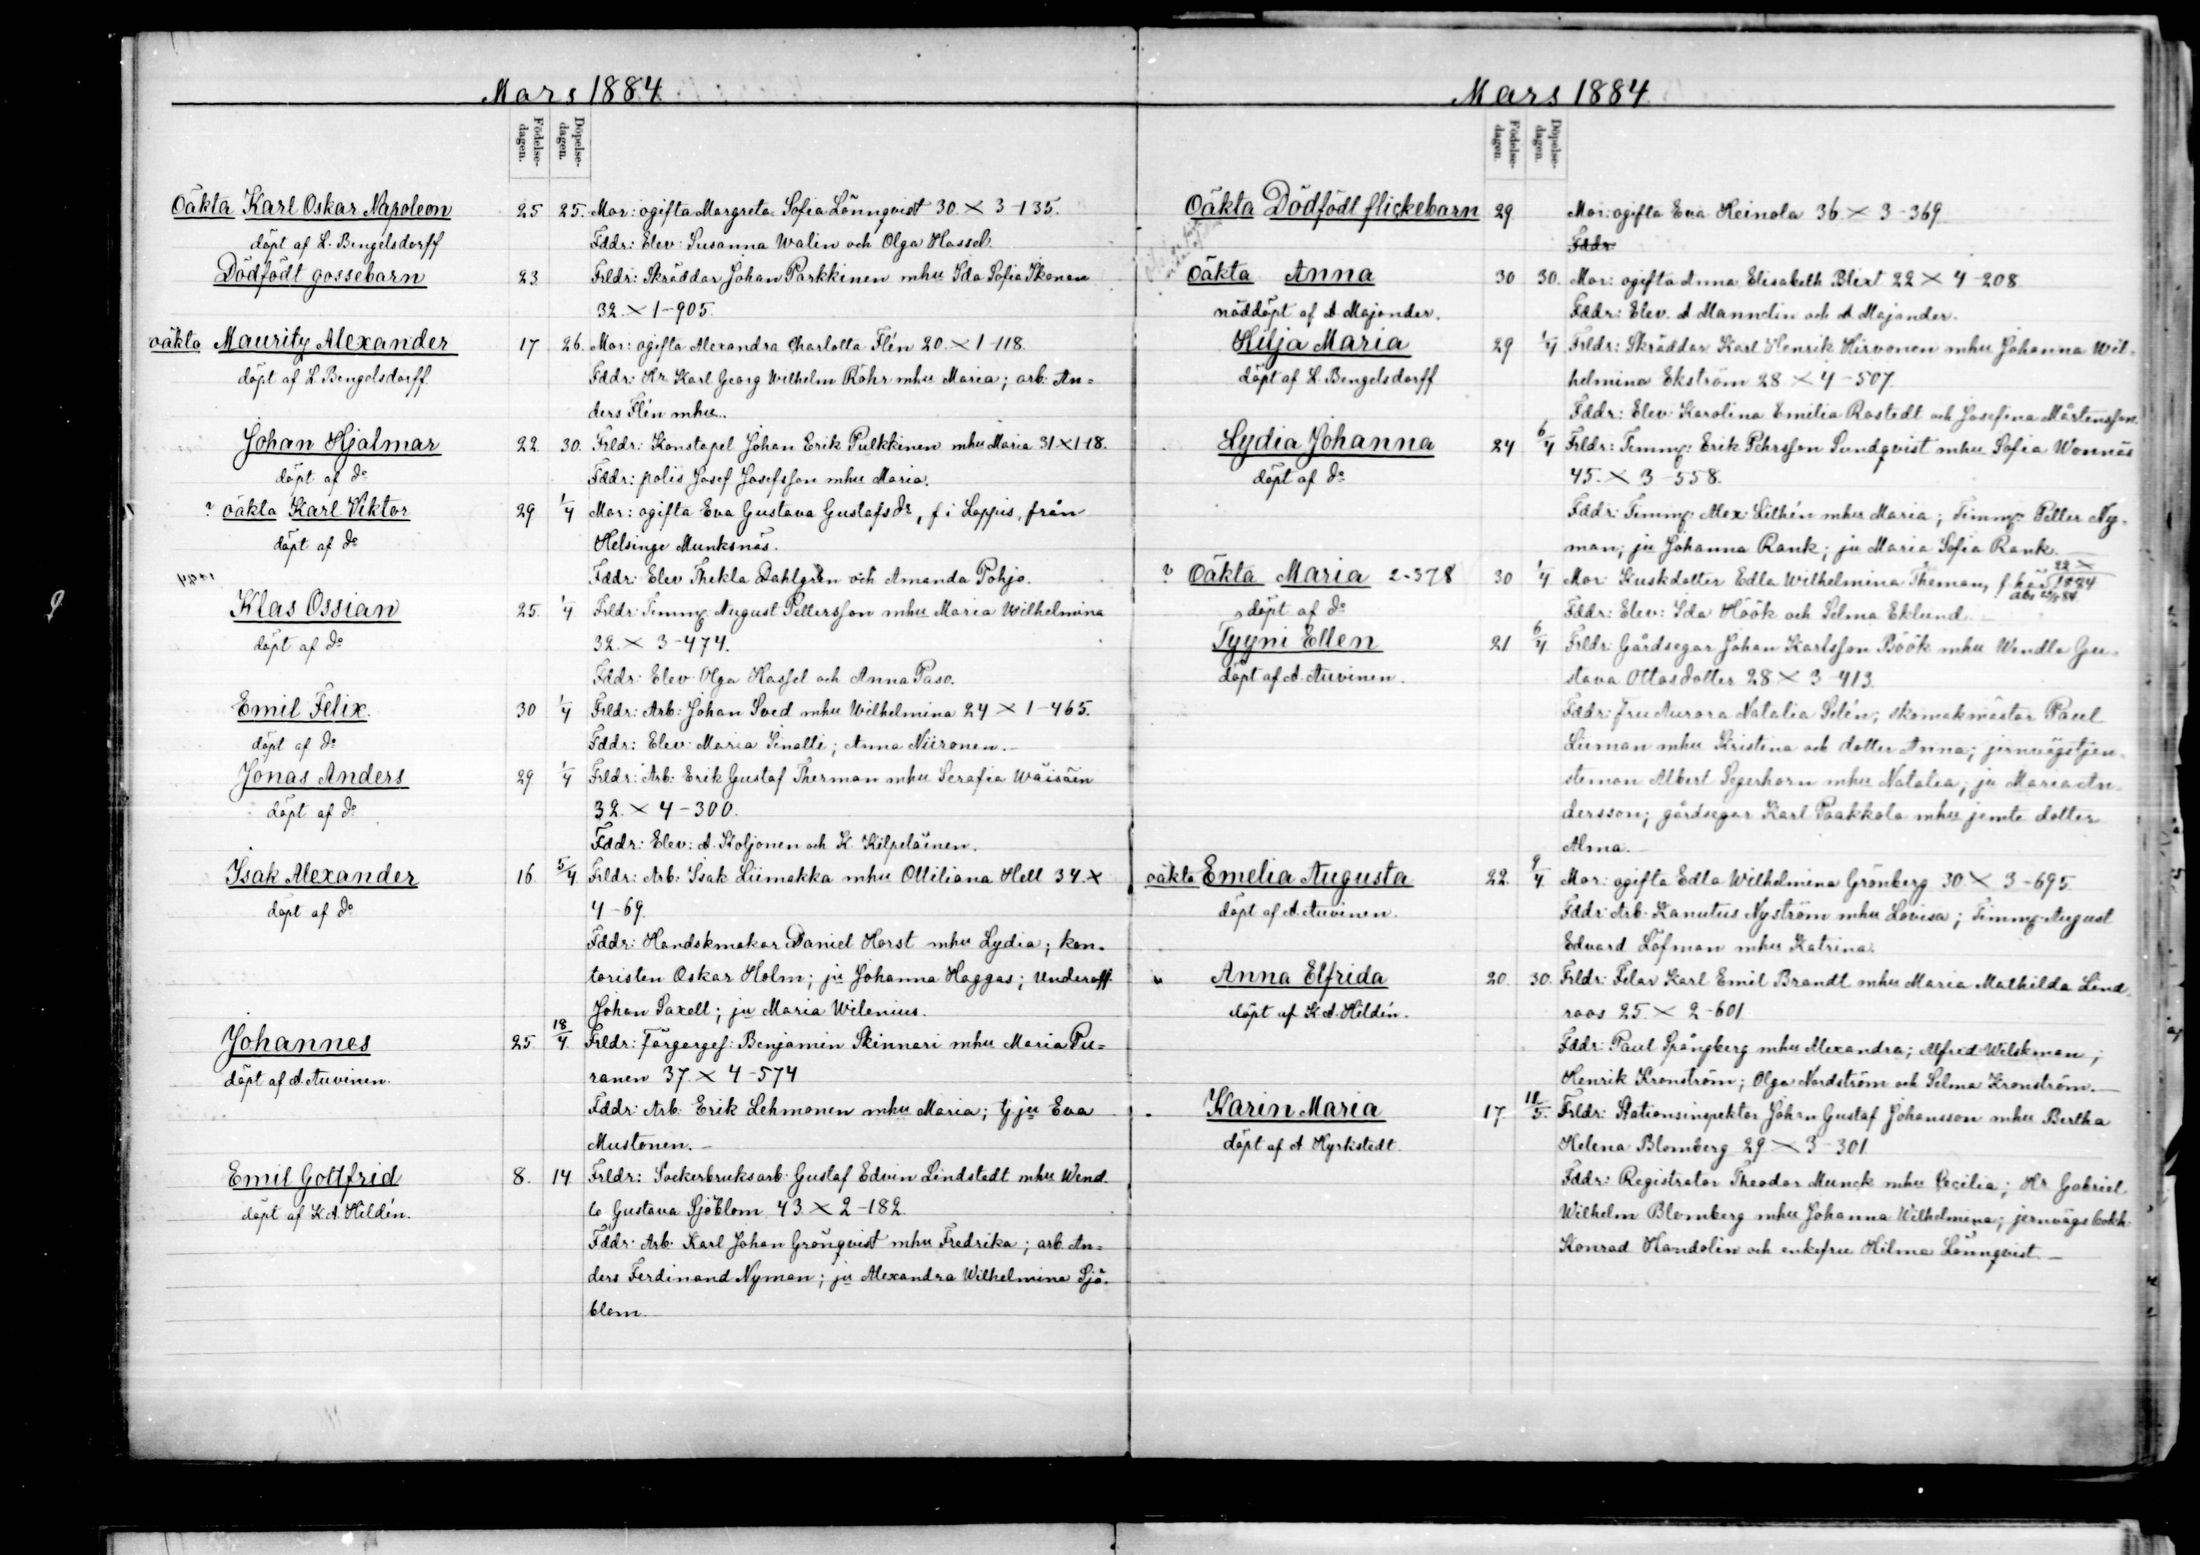 Mars 1884
Födelse-dagen. Döpelse-dagen.
Oäkta Karl Oskar Napoleon 25 25. Mor: ogifta Margreta Sofia Lönnqvist 30. × 3-135.
döpt af L. Bengelsdorff Fddr: Elev: Susanna Walin och Olga Hassel.
Dödfödt gossebarn 23 Frldr: Skräddar Johan Parkkinen mhu Ida Sofia Ikonen
32. × 1-905.
oäkta Maurity Alexander 17 26. Mor: ogifta Alexandra Charlotta Flén 20. × 1-118.
döpt af L. Bengelsdorff Fddr: Hr Karl Georg Wilhelm Röhr mhu Maria; arb: An=
ders Flén mhu.
Johan Hjalmar 22 30. Frldr: Konstapel Johan Erik Pulkkinen mhu Maria 31 × 1-18.
döpt af do Fddr: polis Josef Josefsson mhu Maria.
? oäkta Karl Viktor 29 1/4 Mor: ogifta Eva Gustava Gustafsdr, f i Loppis, från
döpt af do Helsinge Munksnäs.
Fddr: Elev Thekla Dahlgren och Amanda Pohjo.
Klas Ossian 25. 1/4 Frldr: Timmg: August Pettersson mhu Maria Wilhelmina
döpt af do 32. × 3-474.
Fddr: Elev Olga Hassel och Anna Paso.
Emil Felix. 30 1/4 Frldr: Arb: Johan Sved mhu Wilhelmina 24 × 1-465.
döpt af do Fddr: Elev: Maria Sinatti; Anna Niironen.
Jonas Anders 29 1/4 Frldr: Arb: Erik Gustaf Therman mhu Serafia Wäisäin
döpt af do 32. × 4-300.
Fddr: Elev: A. Koljonen och K. Kilpeläinen.
Isak Alexander 16 5/4 Frldr: Arb: Isak Liimakka mhu Ottiliana Hell 34. ×
döpt af do 4-69.
Fddr: Handskmakar Daniel Horst mhu Lydia; kon-
toristen Oskar Holm; ju Johanna Haggas; Underoff
Johan Saxell; ju Maria Wilenius.
Johannes 25. 18/4. Frldr: Färgerges: Benjamin Skinnari mhu Maria Pu=
döpt af A. Auvinen. ranen 37. × 4-574
Fddr: Arb: Erik Lehmonen mhu Maria; ju Eva
Mustonen.
Emil Gottfrid 8. 14 Frldr: Sockerbruksarb: Gustaf Edvin Lindstedt mhu Wend
döpt af K A. Hildén. la Gustava Sjöblom 43. × 2-182.
Fddr: Arb: Karl Johan Grönqvist mhu Fredrika; arb. An=
ders Ferdinand Nyman; ju Alexandra Wilhelmina Sjö-
blom.
Mars 1884
Födelse-dagen. Döpelse-dagen.
Oäkta Dödfödt flickebarn 29 Mor: ogifta Eva Heinola 36. × 3-369
Fddr
oäkta Anna 30 30. Mor: ogifta Anna Elisabeth Blixt 22 × 4-208
nöddöpt af A. Majander. Fddr: Elev. A Manndin och A. Majander.
Hilja Maria 29 1/4 Frldr: Skräddar Karl Henrik Hirvonen mhu Johanna Wil-
döpt af L. Bengelsdorff helmina Ekström 28 × 4-507.
Fddr: Elev: Karolina Emilia Rostedt och Josefina Mårtensson.
Lydia Johanna 24 6/4 Frldr: Timmg: Erik Pehrsson Sundqvist mhu Sofia Wonnäs
döpt af do 45. × 3-558.
Fddr: Timmg: Alex: Lithén mhu Maria; Timmg: Petter Ny-
man; ju Johanna Rank; ju Maria Sofia Rank.
? Oäkta Maria 2-378 30 1/4 Mor: Kuskdotter Edla Wilhelmina Theman, f. 22 × 1884
döpt af do Fddr: Elev: Ida Höök och Selma Eklund.
Tyyni Ellen 21 6/4 Frldr: Gårdsegar Johan Karlsson Böök mhu Wendla Gu-
döpt af A. Auvinen. stava Ottosdotter 28 × 3-413.
Fddr: fru Aurora Natalia Selén; skomakmästar Paul
Liiman mhu Kristina och dotter Anna; jernvägstjen-
steman Albert Segerhorn mhu Natalia; ju Maria An-
dersson; gårdsegar Karl Paakkola mhu jemte dotter
Alma.
oäkta Emelia Augusta 22. 9/4. Mor: ogifta Edla Wilhelmina Grönberg 30 × 3-695.
döpt af A. Auvinen. Fddr: Arb: Kanutus Nyström mhu Lovisa; Timmg. August
Edvard Löfman mhu Katrina.
Anna Elfrida 20. 30. Frldr: Filar Karl Emil Brandt mhu Maria Mathilda Lind-
döpt af K A. Hildén. roos 25. × 2-601
Fddr: Paul Spångberg mhu Alexandra; Alfred Welskman;
Henrik Kronström; Olga Nordström och Selma Kronström.
Karin Maria 17 11/5. Frldr: Stationsinspektor Johan Gustaf Johansson mhu Bertha
döpt af A Hyrkstedt. Helena Blomberg 29 × 3-301
Fddr: Registrator Theodor Munck mhu Cecilia; Hr Gabriel
Wilhelm Blomberg mhu Johanna Wilhelmina; jernvägsbokh:
Konrad Handolin och enkefru Hilma Lönnqvist.